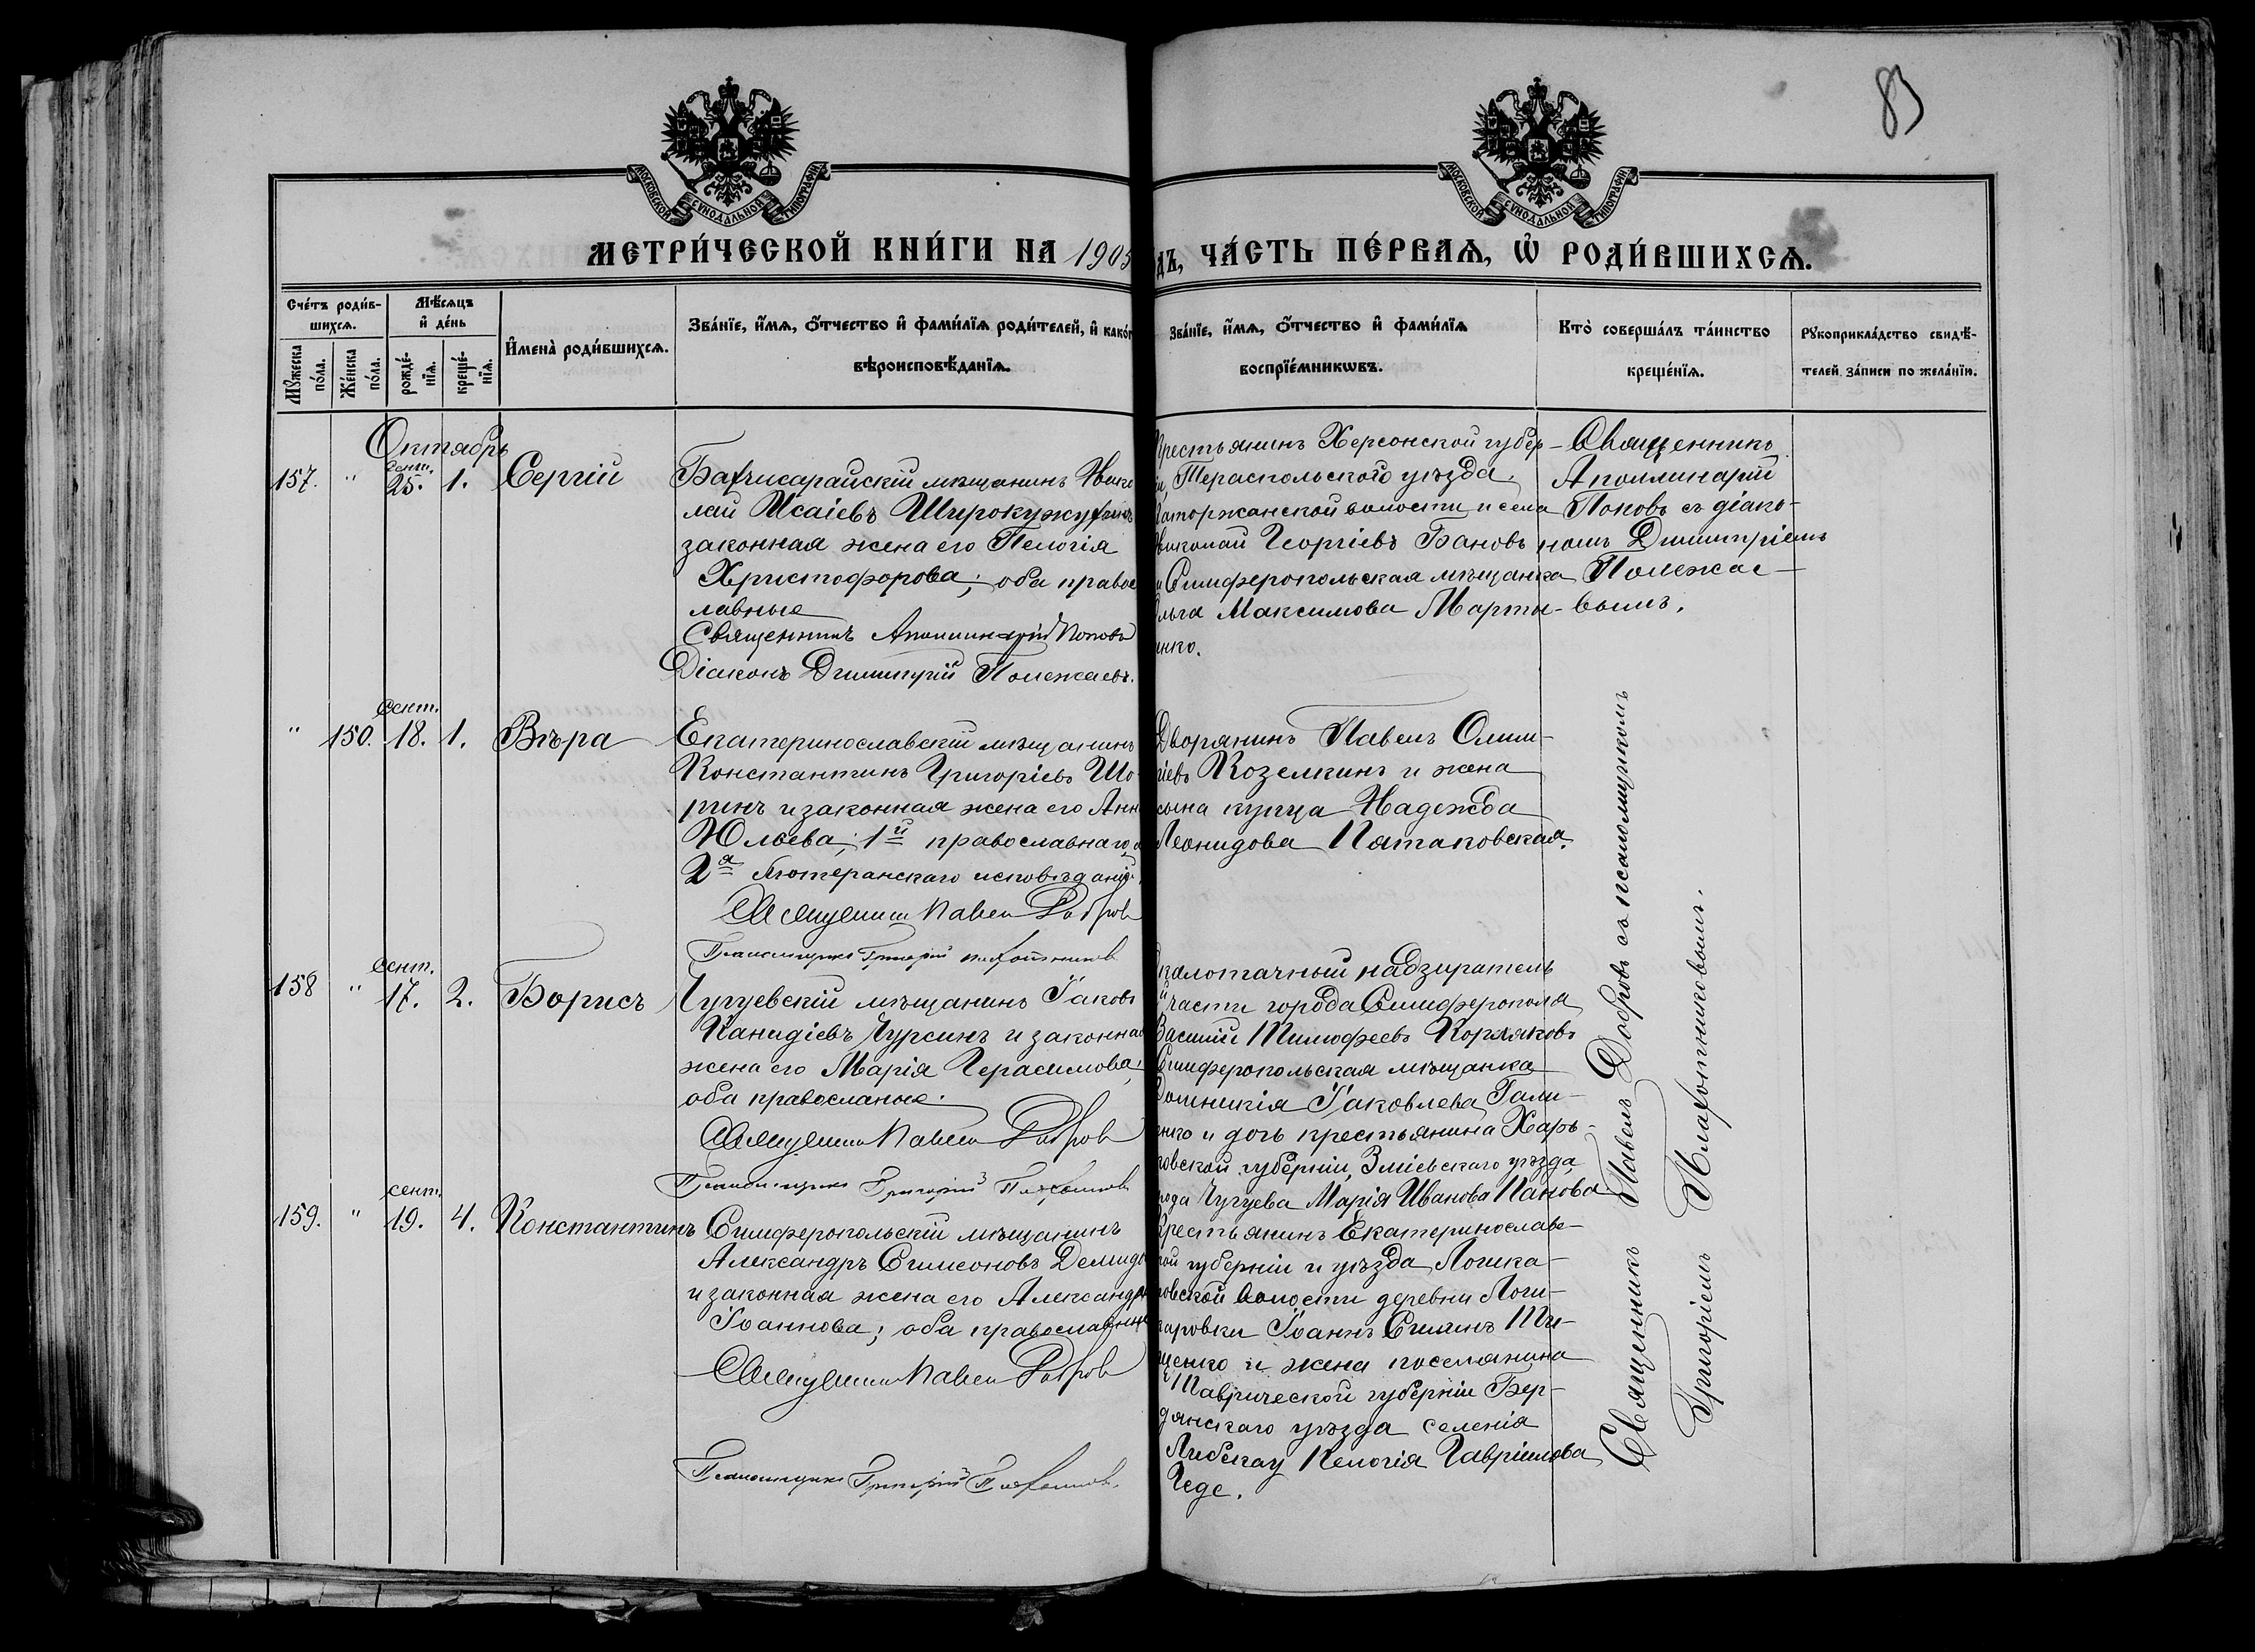 83
МОСКОВСКОЙ СѴНОДАЛЬНОЙ ТИПОГРАФІИ
МОСКОВСКОЙ СѴНОДАЛЬНОЙ ТИПОГРАФІИ
МЕТРИ́ЧЕСКОЙ КНИ́ГИ НА 1905
дъ, ЧА́СТЬ ПЕ́РВАѦ, Ѡ҆ РОДИ́ВШИХСѦ.
Сче́тъ роди́в-
шихсѧ.
Мꙋ́жеска
по́ла.
Же́нска
по́ла.
Мѣ́сѧцъ
и҆ де́нь
рожде́-
нїѧ.
креще́-
нїѧ.
И҆мена̀ роди́вшихсѧ.
Зва́нїе, и҆́мѧ, ѻ҆́тчество и҆ фами́лїѧ роди́телей, и҆ како́г
вѣроисповѣ́данїѧ.
Зва́нїе, и҆́мѧ, ѻ҆́тчество и҆ фами́лїѧ
воспрїе́мникѡвъ.
Кто̀ соверша́лъ та́инство
креще́нїѧ.
Рꙋкоприкла́дство свидѣ́-
телей за́писи по жела́нїю.
Октябрь
157. " Сент. 25. 1. Сергій
Бахчисарайскій мѣщанинъ Нико
лай Исаіевъ
законная жена его Пелагія
Христофорова; оба правос
лавные
Священникъ Аполлинарій Поповъ
Діаконъ Димитрій Полежаевъ.
крестьянинъ Херсонской губер-
іи, Тераспольскаго уѣзда,
волости и села
Николай Георгіевъ Бановъ
и Симферопольская мѣщанка
Ольга Максимова Марти-
енко.
Священникъ
Аполлинарій
Поповъ съ діако-
номъ Димитріемъ
Полежае-
вымъ.
" 150. Сент. 18. 1. Вѣра
Екатеринославскій мѣщанинъ
Константинъ Григоріевъ Шо-
ринъ и законная жена его Анн
Юльева; 1й православнаго, а
2я Лютеранскаго исповѣданія.
Священникъ Павелъ Добровъ
Псаломщикъ Григорій Плахотниковъ
Дворянинъ Павелъ Олим-
піевъ Козелкинъ и жена
сына купца Надежда
Леонидова Пятаковская.
158 " Сент. 17. 2. Борисъ
Чугуевскій мѣщанинъ Іаковъ
Канидіевъ Чурсинъ и законная
жена его Марія Герасимова;
оба православные.
Священникъ Павелъ Добровъ
Псаломщикъ Григорій Плахотниковъ
околоточный надзиратель
части города Симферополя
Василій Тимофеевъ Коржяковъ
Симферопольская мѣщанка
Домникія Іаковлева Гали-
енко и дочь крестьянина Харь-
ковской губерніи, Зміевскаго уѣзда
города Чугуева Марія Иванова Панова.
159. " сент. 19. 4. Константинъ
Симферопольскій мѣщанинъ
Александръ Симеоновъ Демидо
и законная жена его Александра
Іоаннова; оба православные
Священникъ Павелъ Добровъ
Псаломщикъ Григорій Плахотниковъ.
Крестьянинъ Екатеринославс-
кой губерніи и уѣзда, Лошка-
ровской волости деревни Логи-
Іоаннъ Силинъ Ти-
щенко и жена поселянина
Таврической губерніи Бер-
дянскаго уѣзда селенія
Либенау Пелагія Гавріилова
Геде.
Священникъ Павелъ Добровъ съ псаломщикомъ
Григоріемъ Плахотниковымъ.